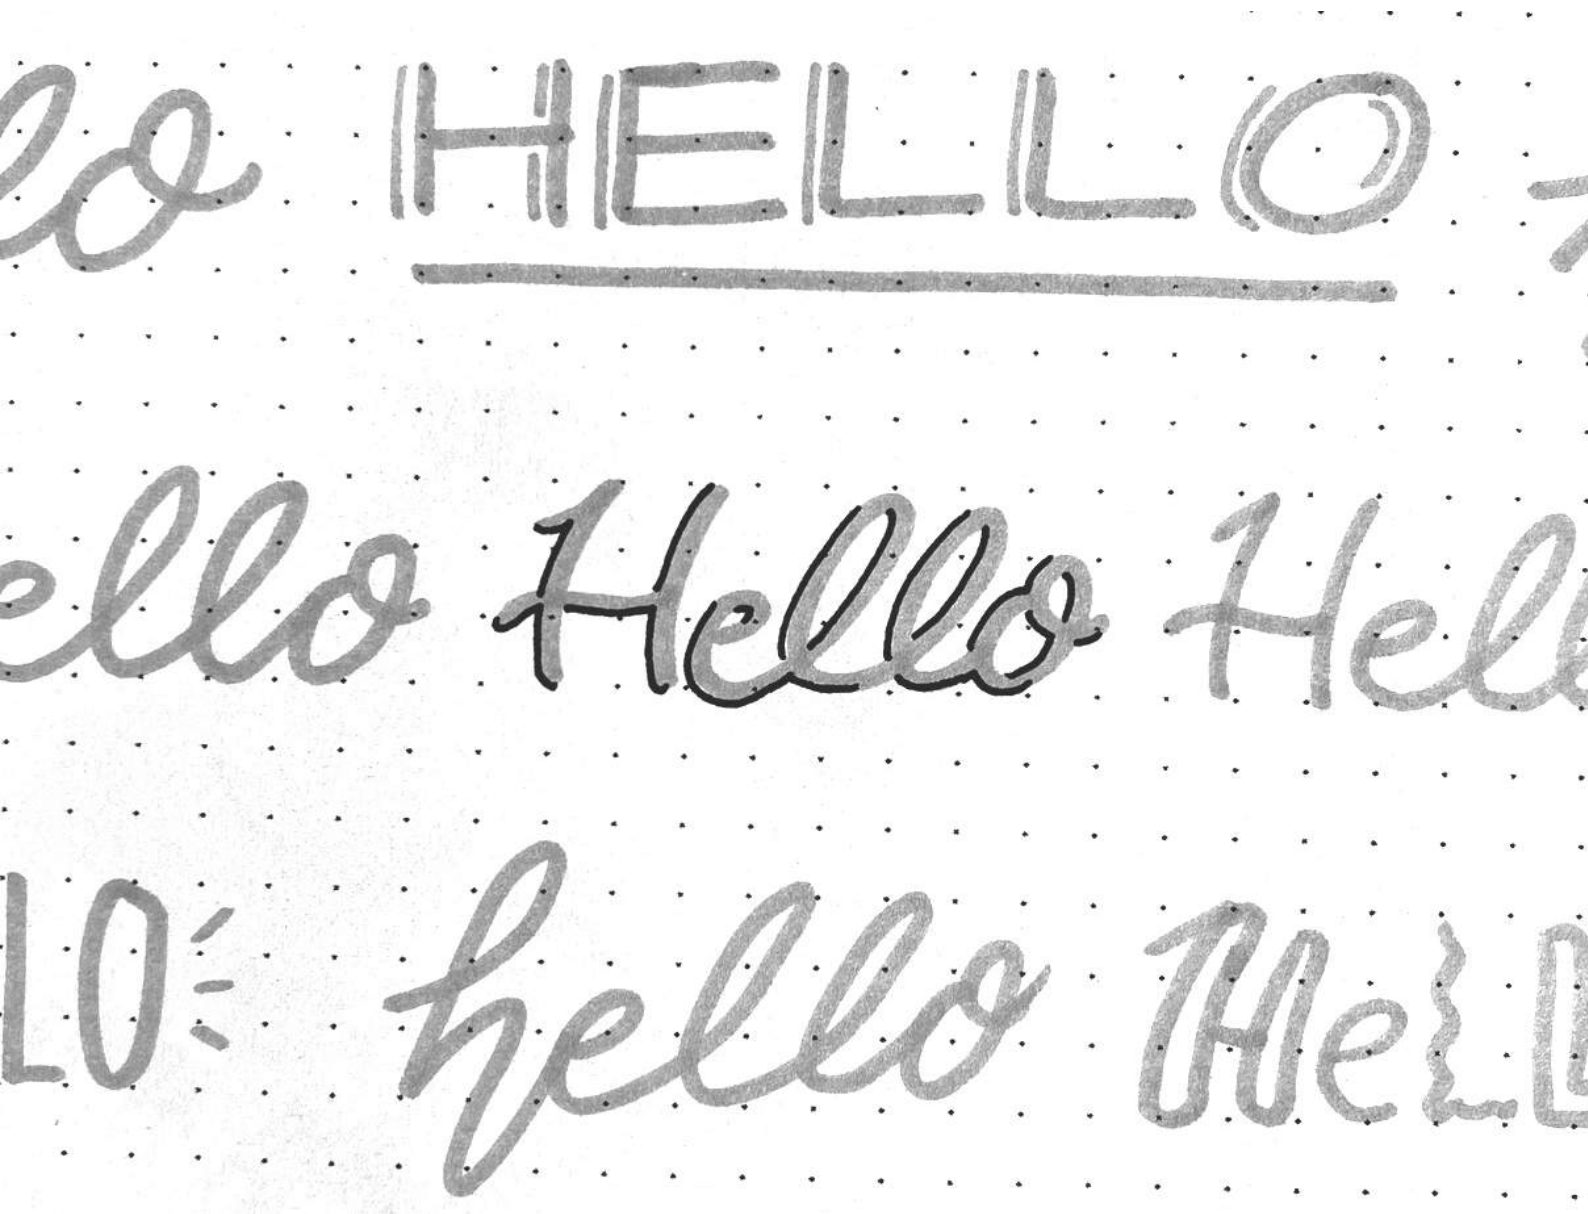 lo HELLO
ello Hello Hell
LO hello HeL